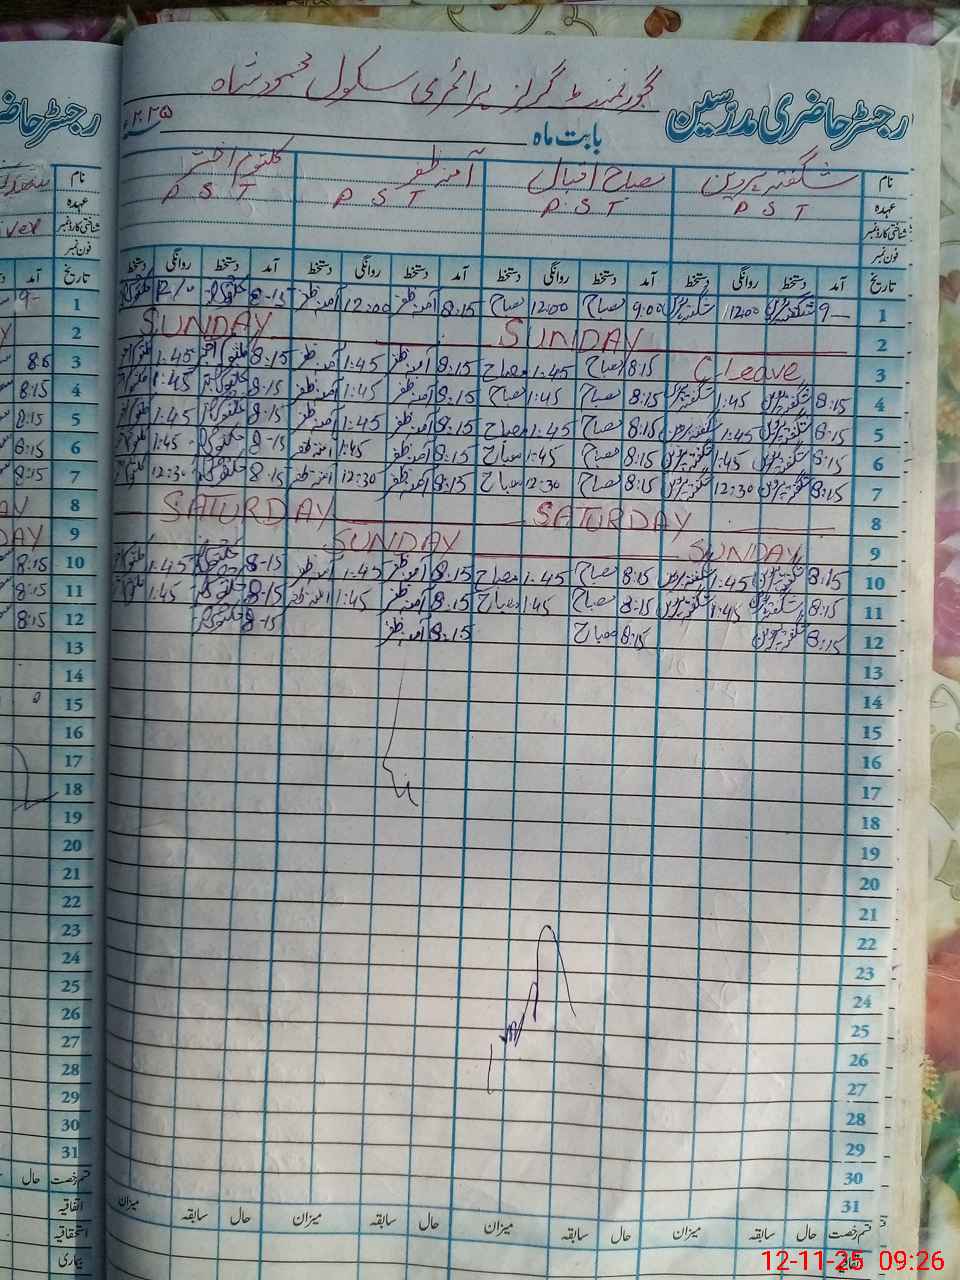 گورنمنٹ گرلز پرائمری سکول محمود شاہ
رجسٹر حاضری مدرسین
بابت ماہ ۲۰۲۵ء
نام شگفتہ پروین مصباح اقبال آمنہ ظفر کلثوم اختر
عہدہ PST PST PST PST
شناختی کارڈ نمبر
فون نمبر
تاریخ آمد دستخط روانگی دستخط آمد دستخط روانگی دستخط آمد دستخط روانگی دستخط آمد دستخط روانگی دستخط
1 9 شگفتہ پروین 12:00 شگفتہ پروین 9:00 مصباح 12:00 مصباح 8:15 آمنہ ظفر 12:00 آمنہ ظفر 8-15
2 SUNDAY SUNDAY
3 C Leave 8:15 مصباح 1:45 مصباح 8:15 آمنہ ظفر 1:45 آمنہ ظفر 8:15 1:45
4 8:15 شگفتہ پروین 1:45 شگفتہ پروین 8:15 مصباح 1:45 مصباح 8:15 آمنہ ظفر 1:45 آمنہ ظفر 8-15 1:45
5 8:15 شگفتہ پروین 1:45 شگفتہ پروین 8:15 مصباح 1:45 مصباح 8:15 آمنہ ظفر 1:45 آمنہ ظفر 8-15 1:45
6 8:15 شگفتہ پروین 1:45 شگفتہ پروین 8:15 مصباح 1:45 مصباح 8:15 آمنہ ظفر 1:45 آمنہ ظفر 8-15 1:45
7 8:15 شگفتہ پروین 12:30 شگفتہ پروین 8:15 مصباح 12:30 مصباح 8:15 آمنہ ظفر 12:30 آمنہ ظفر 8-15 12:30
8 SATURDAY SATURDAY
9 SUNDAY SUNDAY
10 8:15 شگفتہ پروین 1:45 شگفتہ پروین 8:15 مصباح 1:45 مصباح 8:15 آمنہ ظفر 1:45 آمنہ ظفر 8-15 1:45
11 8:15 شگفتہ پروین 1:45 شگفتہ پروین 8:15 مصباح 1:45 مصباح 8:15 آمنہ ظفر 1:45 آمنہ ظفر 8-15 1:45
12 8:15 شگفتہ پروین 8:15 مصباح 8:15 آمنہ ظفر 8-15
13
14
15
16
17
18
19
20
21
22
23
24
25
26
27
28
29
30
31
قسم رخصت حال سابقہ میزان حال سابقہ میزان حال سابقہ میزان حال سابقہ میزان
اتفاقیہ
رجسٹر حاضر
نام
عہدہ
شناختی کارڈ نمبر
فون نمبر
تاریخ آمد
1 9-
2
3
4 8:15
5 8:15
6 8:15
7 8:15
8
9
10 8:15
11 8:15
12 8:15
13
14
15
16
17
18
19
20
21
22
23
24
25
26
27
28
29
30
31
قسم رخصت حال
اتفاقیہ
استحقاقیہ
بیماری
12-11-25 09:26